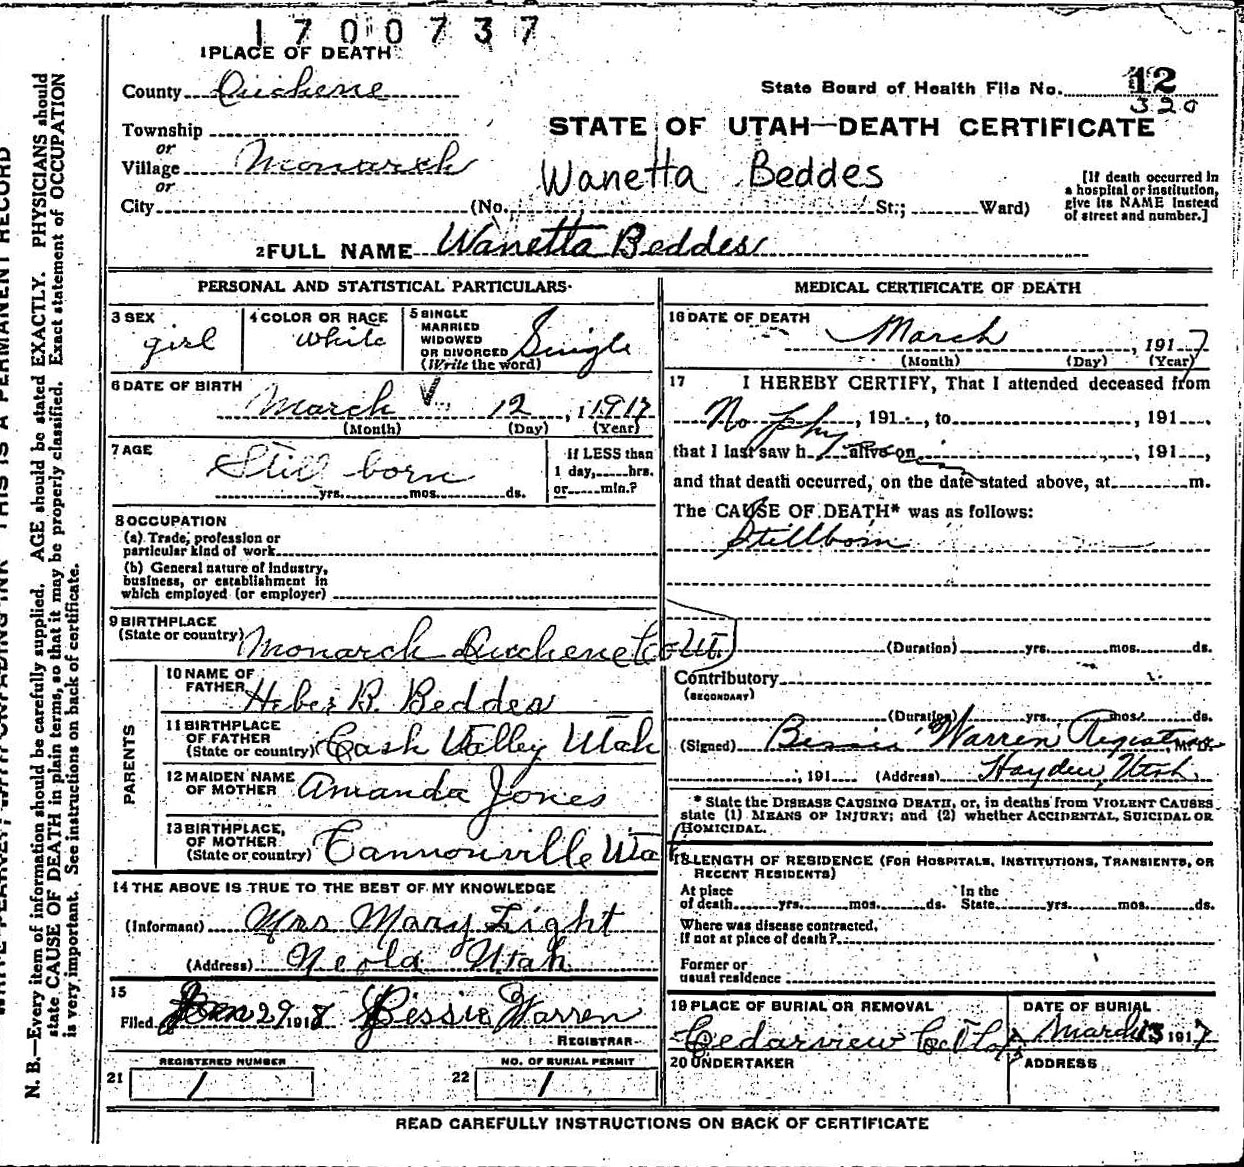 1700737
1 PLACE OF DEATH
County Duchene
State Board of Health File No. 12
320
Township
or
Village Monarch
or
City (No. St.; Ward)
STATE OF UTAH—DEATH CERTIFICATE
Wanetta Beddes
[If death occurred in
a hospital or institution,
give its NAME instead
of street and number.]
2 FULL NAME Wanetta Beddes
PERSONAL AND STATISTICAL PARTICULARS
3 SEX
girl
4 COLOR OR RACE
white
5 SINGLE
MARRIED
WIDOWED
OR DIVORCED
(Write the word)
Single
6 DATE OF BIRTH
March 12, 1917
(Month) (Day) (Year)
7 AGE
Still born
yrs. mos. ds.
If LESS than
1 day, hrs.
or min.?
8 OCCUPATION
(a) Trade, profession or
particular kind of work
(b) General nature of industry,
business, or establishment in
which employed (or employer)
9 BIRTHPLACE
(State or country) Monarch Duchene Co Ut.
PARENTS
10 NAME OF
FATHER Heber R. Beddes
11 BIRTHPLACE
OF FATHER
(State or country) Cash Valley Utah
12 MAIDEN NAME
OF MOTHER Amanda Jones
13 BIRTHPLACE,
OF MOTHER
(State or country) Cannonville Uta
14 THE ABOVE IS TRUE TO THE BEST OF MY KNOWLEDGE
(Informant) Mrs Mary Light
(Address) Neola Utah
15
Filed 29 1918 Bessie Warren
REGISTRAR
REGISTERED NUMBER
21 1
NO. OF BURIAL PERMIT
22 1
MEDICAL CERTIFICATE OF DEATH
16 DATE OF DEATH
March, 1917
(Month) (Day) (Year)
17 I HEREBY CERTIFY, That I attended deceased from
No phy, 191 , to , 191 ,
that I last saw h alive on , 191 ,
and that death occurred, on the date stated above, at m.
The CAUSE OF DEATH* was as follows:
Stillborn
(Duration) yrs. mos. ds.
Contributory
(SECONDARY)
(Duration) yrs. mos. ds.
(Signed) Bessie Warren Registrar M. D.
, 191 (Address) Hayden, Utah.
* State the DISEASE CAUSING DEATH, or, in deaths from VIOLENT CAUSES
state (1) MEANS OF INJURY; and (2) whether ACCIDENTAL, SUICIDAL OR
HOMICIDAL.
18 LENGTH OF RESIDENCE (FOR HOSPITALS, INSTITUTIONS, TRANSIENTS, OR
RECENT RESIDENTS)
At place
of death yrs. mos. ds.
In the
State yrs. mos. ds.
Where was disease contracted,
if not at place of death?
Former or
usual residence
19 PLACE OF BURIAL OR REMOVAL
Cedarview
DATE OF BURIAL
March 13 1917
20 UNDERTAKER
ADDRESS
READ CAREFULLY INSTRUCTIONS ON BACK OF CERTIFICATE
THIS IS A PERMANENT RECORD
N. B.—Every item of information should be carefully supplied. AGE should be stated EXACTLY. PHYSICIANS should
state CAUSE OF DEATH in plain terms, so that it may be properly classified. Exact statement of OCCUPATION
is very important. See instructions on back of certificate.